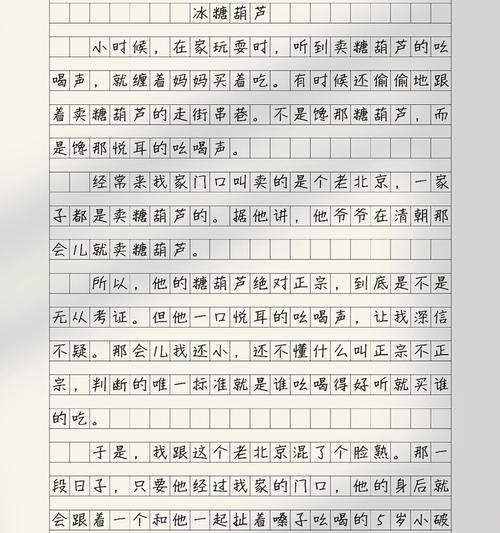 冰糖葫芦
小时候，在家玩耍时，听到卖糖葫芦的吆
喝声，就缠着妈妈买着吃。有时候还偷偷地跟
着卖糖葫芦的走街串巷。不是馋那糖葫芦，而
是馋那悦耳的吆喝声。
经常来我家门口叫卖的是个老北京，一家
子都是卖糖葫芦的。据他讲，他爷爷在清朝那
会儿就卖糖葫芦。
所以，他的糖葫芦绝对正宗，到底是不是
无从考证。但他一口悦耳的吆喝声，让我深信
不疑。那会儿我还小，还不懂什么叫正宗不正
宗，判断的唯一标准就是谁吆喝得好听就买谁
的吃。
于是，我跟这个老北京混了个脸熟。那一
段日子，只要他经过我家的门口，他的身后就
会跟着一个和他一起扯着嗓子吆喝的5岁小破